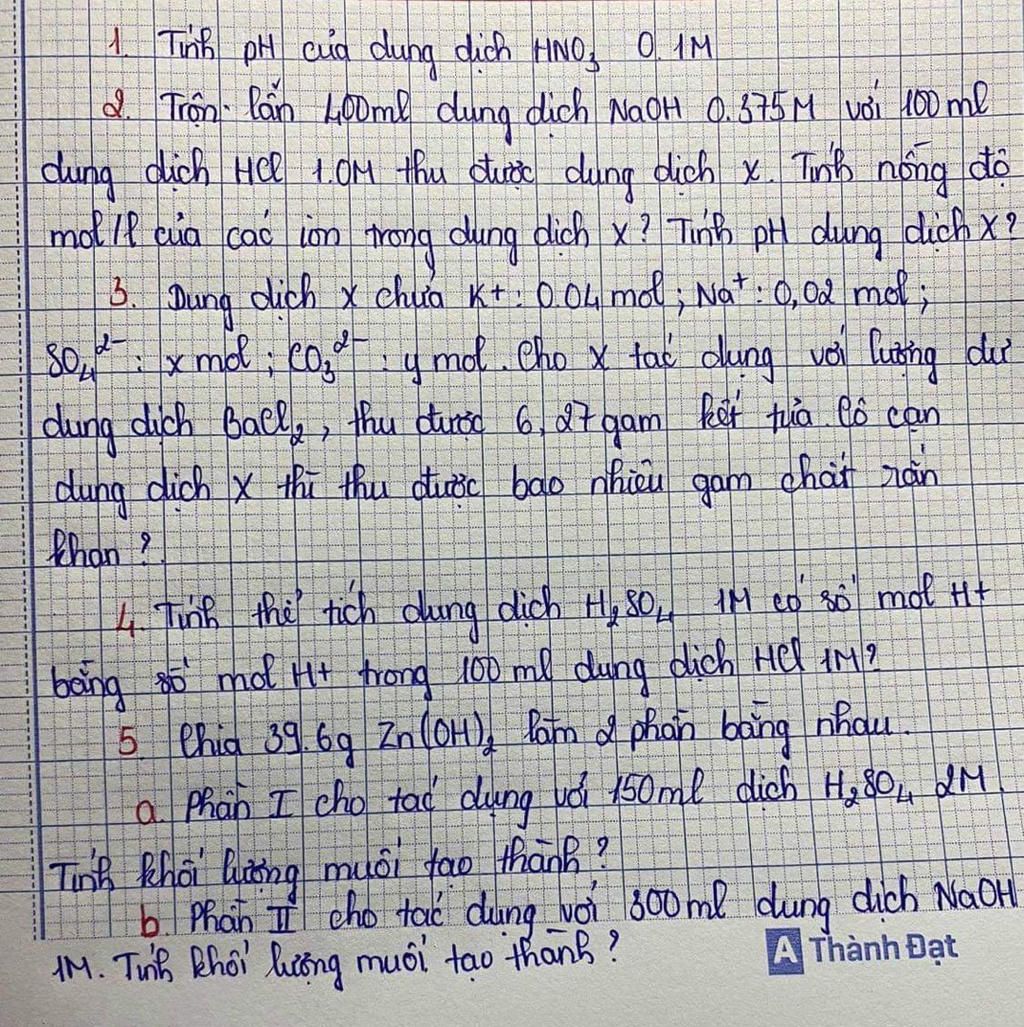 1. Tính pH của dung dịch HNO₃ 0.1M
2. Trộn lẫn 400ml dung dịch NaOH 0.375M với 100ml
dung dịch HCl 1.0M thu được dung dịch x. Tính nồng độ
mol/l của các ion trong dung dịch x? Tính pH dung dịch X?
3. Dung dịch x chứa K+: 0.04 mol; Na⁺: 0,02 mol;
SO₄²⁻: x mol; CO₃²⁻: y mol. Cho x tác dụng với lượng dư
dung dịch BaCl₂, thu được 6,27gam kết tủa. Cô cạn
dung dịch x thì thu được bao nhiêu gam chất rắn
khan?
4. Tính thể tích dung dịch H₂SO₄ 1M có số mol H+
bằng số mol H+ trong 100ml dung dịch HCl 1M?
5. Chia 39.6g Zn(OH)₂ làm 2 phần bằng nhau.
a. Phần I cho tác dụng với 150ml dịch H₂SO₄ 2M.
Tính khối lượng muối tạo thành?
b. Phần II cho tác dụng với 300ml dung dịch NaOH
1M. Tính khối lượng muối tạo thành?
A Thành Đạt